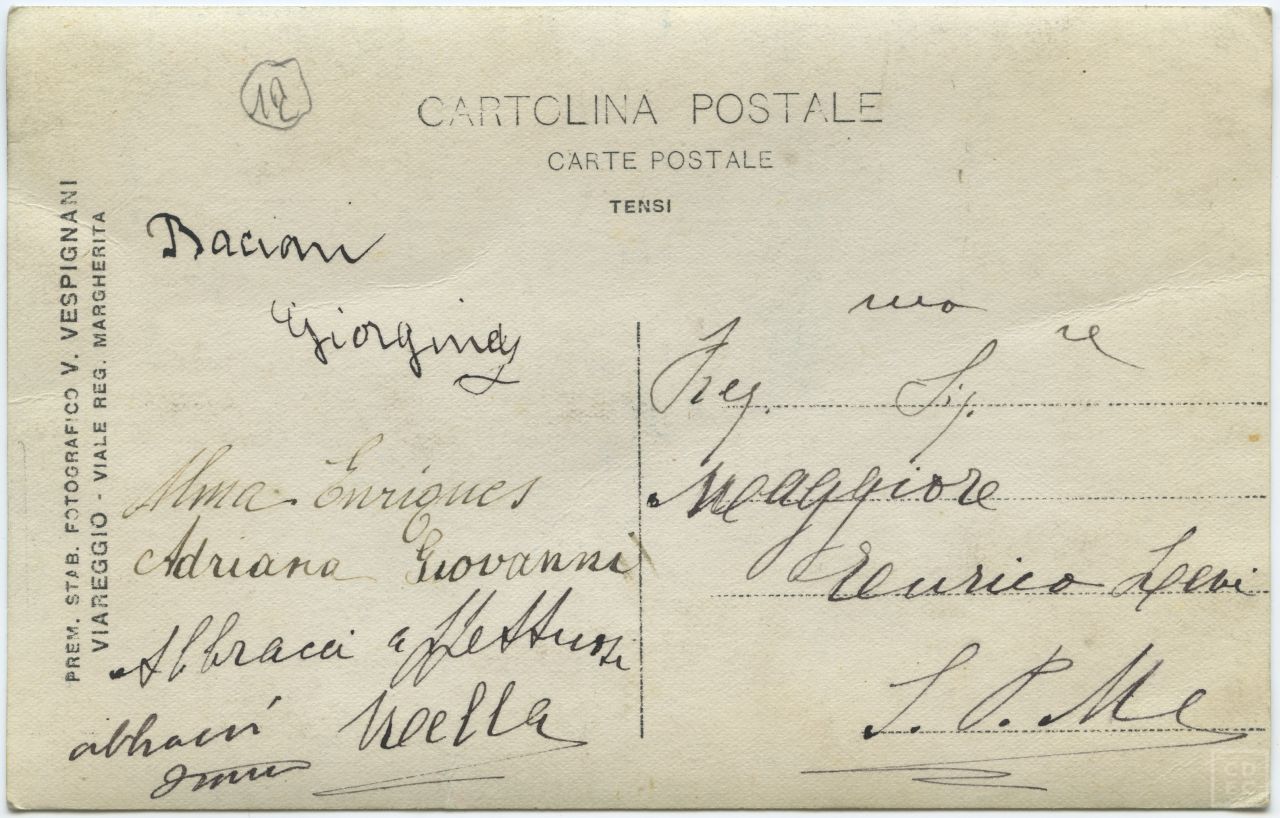 12
CARTOLINA POSTALE
CARTE POSTALE
TENSI
PREM. STAB. FOTOGRAFICO V. VESPIGNANI
VIAREGGIO - VIALE REG. MARGHERITA
Bacioni
Giorgina
Alma Enriques
Adriana Giovanni
Abbracci affettuosi
Nella
abbracci
Preg. mo Sig. re
Maggiore
Enrico Levi
S. P. M.
CD
EC